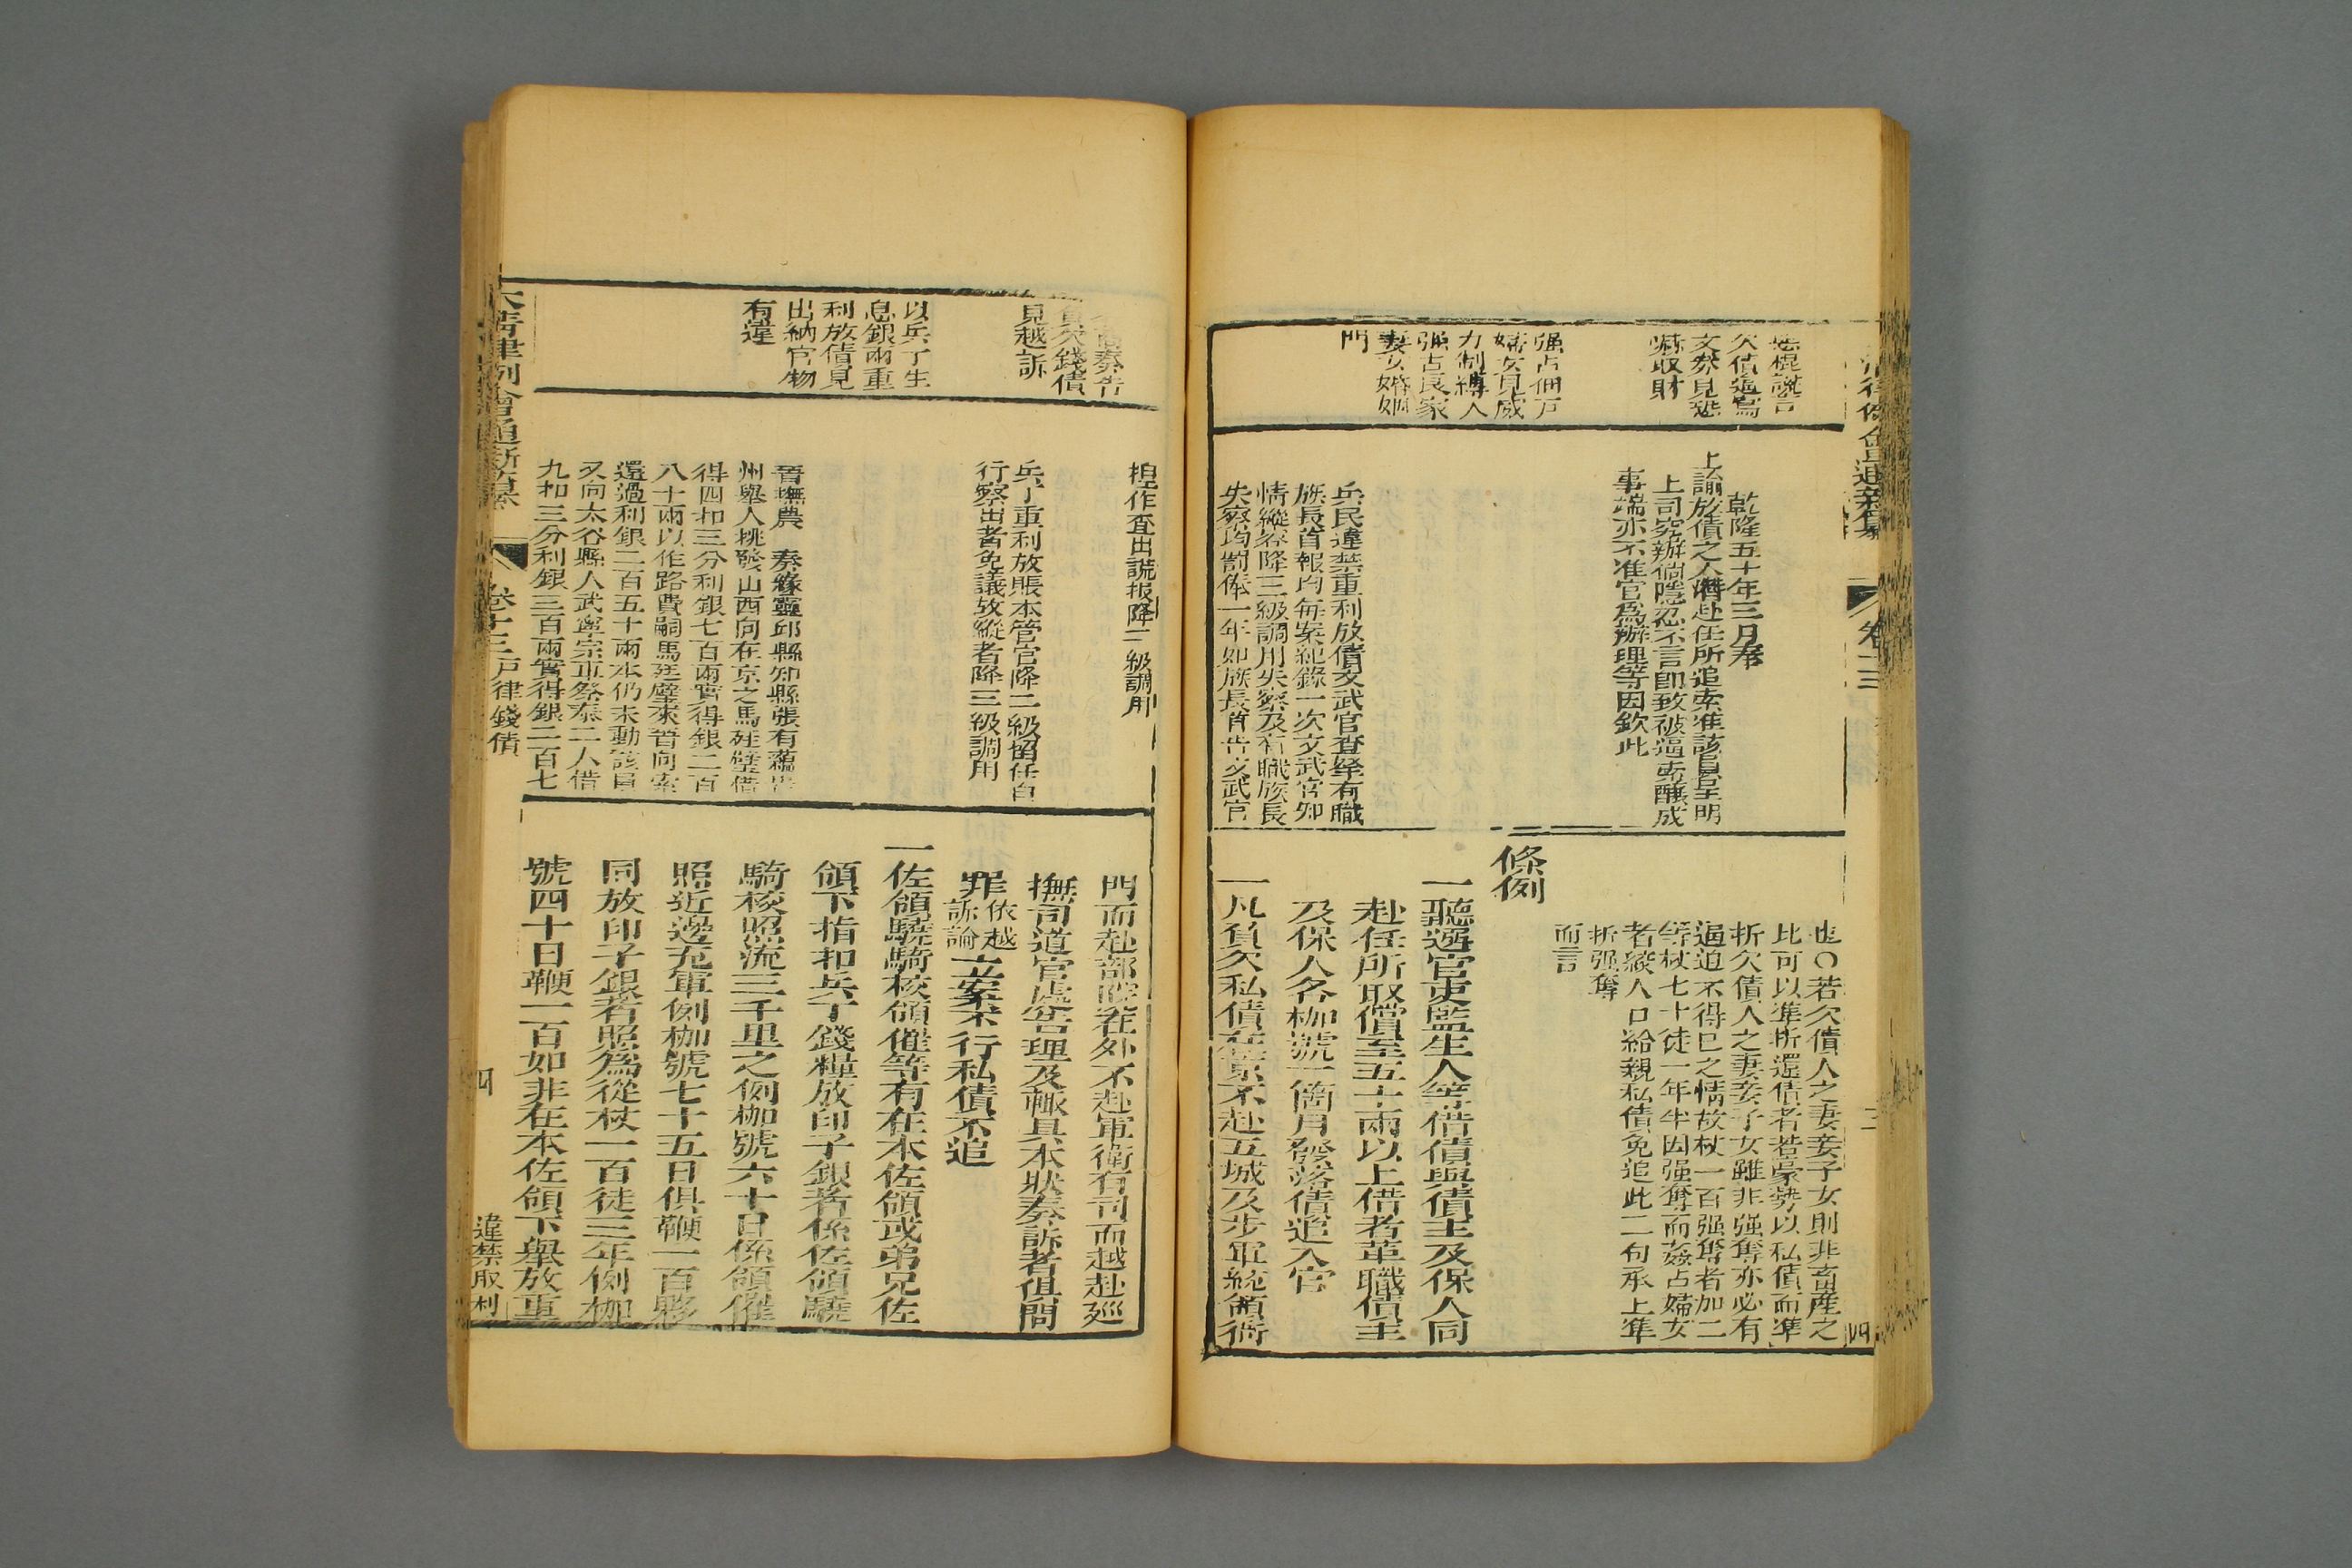 惡棍設言
欠債逼寫
文劵見恐
嚇取財
强占佃戶
婦女見威
力制縛人
强占良家
妻女婚姻
門
乾隆五十年三月奉
上諭放債之人潛赴任所追索准該員呈明
上司究辦倘隱忍不言卽致被逼索釀成
事端亦不准官爲辦理等因欽此
兵民違禁重利放債文武官查拏有職
族長首報均每案紀錄一次文武官卿
情縱容降三級調用失察及有職族長
失察均罰俸一年如族長首告文武官
也〇若欠債人之妻妾子女則非畜產之
比可以準折還債者若豪勢以私債而準
折欠債人之妻妾子女雖非强奪亦必有
逼迫不得已之情故杖一百强奪者加二
等杖七十徒一年半因强奪而姦占婦女
者絞人口給親私債免追此二句承上準
折强奪
而言
條例
一聽選官吏監生人等借債與債主及保人同
赴任所取償至五十兩以上借者革職債主
及保人各枷號一箇月發落債追入官
一凡負欠私債在京不赴五城及步軍統領衙
負欠錢債
見越訴
以兵丁生
息銀兩重
利放債見
出納官物
有違
揑作查出謊报降二級調用
兵丁重利放賬本管官降二級留任自
行察出者免議故縱者降三級調用
晉撫農 奏緣靈邱縣知縣張有蘊
州舉人挑發山西向在京之馬廷璧借
得四扣三分利銀七百兩實得銀二百
八十兩以作路費嗣馬廷璧來晉向索
還過利銀二百五十兩本仍未動該員
又向太谷縣人武寧宗車祭泰二人借
九扣三分利銀三百兩實得銀二百七
門而赴部院在外不赴軍衛有司而越赴廵
撫司道官處告理及輙具本狀奏訴者俱問
罪依越訴論立案不行私債不追
一佐領驍騎校領催等有在本佐領或弟兄佐
領下指扣兵丁錢糧放印子銀者係佐領驍
騎校照流三千里之例枷號六十日係領催
照近邊充軍例枷號七十五日俱鞭一百夥
同放印子銀者照爲從杖一百徒三年例枷
號四十日鞭一百如非在本佐領下舉放重
大清律例會通新纂
卷十三戶律錢債
四
違禁取利